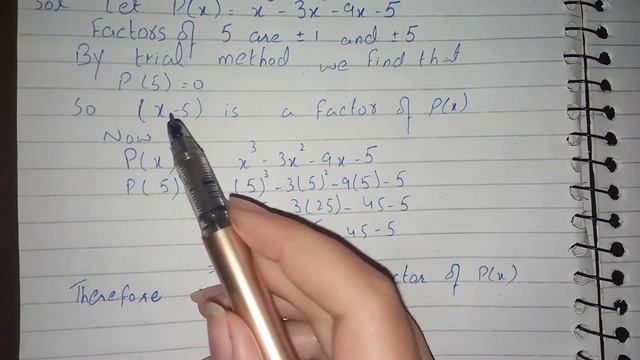 Sol Let P(x) = x³ - 3x² - 9x - 5
Factors of 5 are ±1 and ±5
By trial method we find that
P(5) = 0
So (x-5) is a factor of P(x)
Now
P(x) x³ - 3x² - 9x - 5
P(5) (5)³ - 3(5)² - 9(5) - 5
3(25) - 45 - 5
45 - 5
Therefore ctor of P(x)